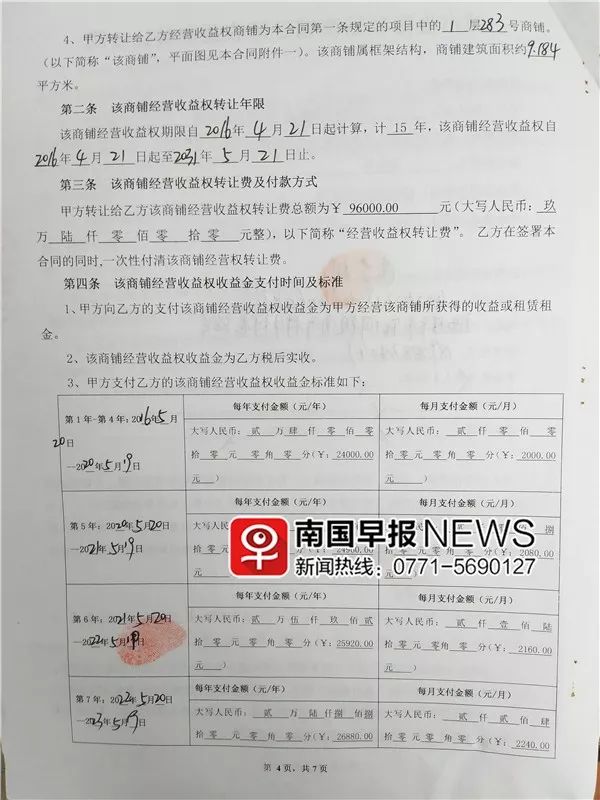 4、甲方转让给乙方经营收益权商铺为本合同第一条规定的项目中的 1 层283号商铺。
（以下简称“该商铺”，平面图见本合同附件一）。该商铺属框架结构，商铺建筑面积约9.184
平方米。
第二条 该商铺经营收益权转让年限
该商铺经营收益权期限自2016年4月21日起计算，计 15 年，该商铺经营收益权自
2016年4月21日起至2031年5月21日止。
第三条 该商铺经营收益权转让费及付款方式
甲方转让给乙方该商铺经营收益权转让费总额为￥ 96000.00 元（大写人民币：玖
万 陆 仟 零 佰 零 拾 零 元整），以下简称“经营收益权转让费”。乙方在签署本
合同的同时,一次性付清该商铺经营权转让费。
第四条 该商铺经营收益权收益金支付时间及标准
1、甲方向乙方的支付该商铺经营收益权收益金为甲方经营该商铺所获得的收益或租赁租
金。
2、该商铺经营收益权收益金为乙方税后实收。
3、甲方支付乙方的该商铺经营收益权收益金标准如下：
第1年-第4年：2016年5月
20日
—2020年5月19日
每年支付金额（元/年）
大写人民币：贰 万 肆 仟 零 佰 零
拾 零 元 零 角 零 分（￥：24000.00
元 ）
每月支付金额（元/月）
大写人民币：贰 仟 零 佰 零
拾 零 元 零 角 零 分（￥：2000.00
元 ）
第5年：2020年5月20日
—2021年5月19日
每年支付金额（元/年）
大写人民币：
拾 零
24960.00
元 ）
每月支付金额（元/月）
捌
2080.00
南国早报NEWS
新闻热线：0771-5690127
第6年：2021年5月20日
—2022年5月19日
每年支付金额（元/年）
大写人民币：贰 万 伍 仟 玖 佰 贰
拾 零 元 零 角 零 分（￥：25920.00
元 ）
每月支付金额（元/月）
大写人民币：贰 仟 壹 佰 陆
拾 零 元 零 角 零 分（￥：2160.00
元 ）
第7年：2022年5月20日
—2023年5月19日
每年支付金额（元/年）
大写人民币：贰 万 陆 仟 捌 佰 捌
拾 零 元 零 角 零 分（￥：26880.00
每月支付金额（元/月）
大写人民币：贰 仟 贰 佰 肆
拾 零 元 零 角 零 分（￥：2240.00
第 4 页，共 7 页